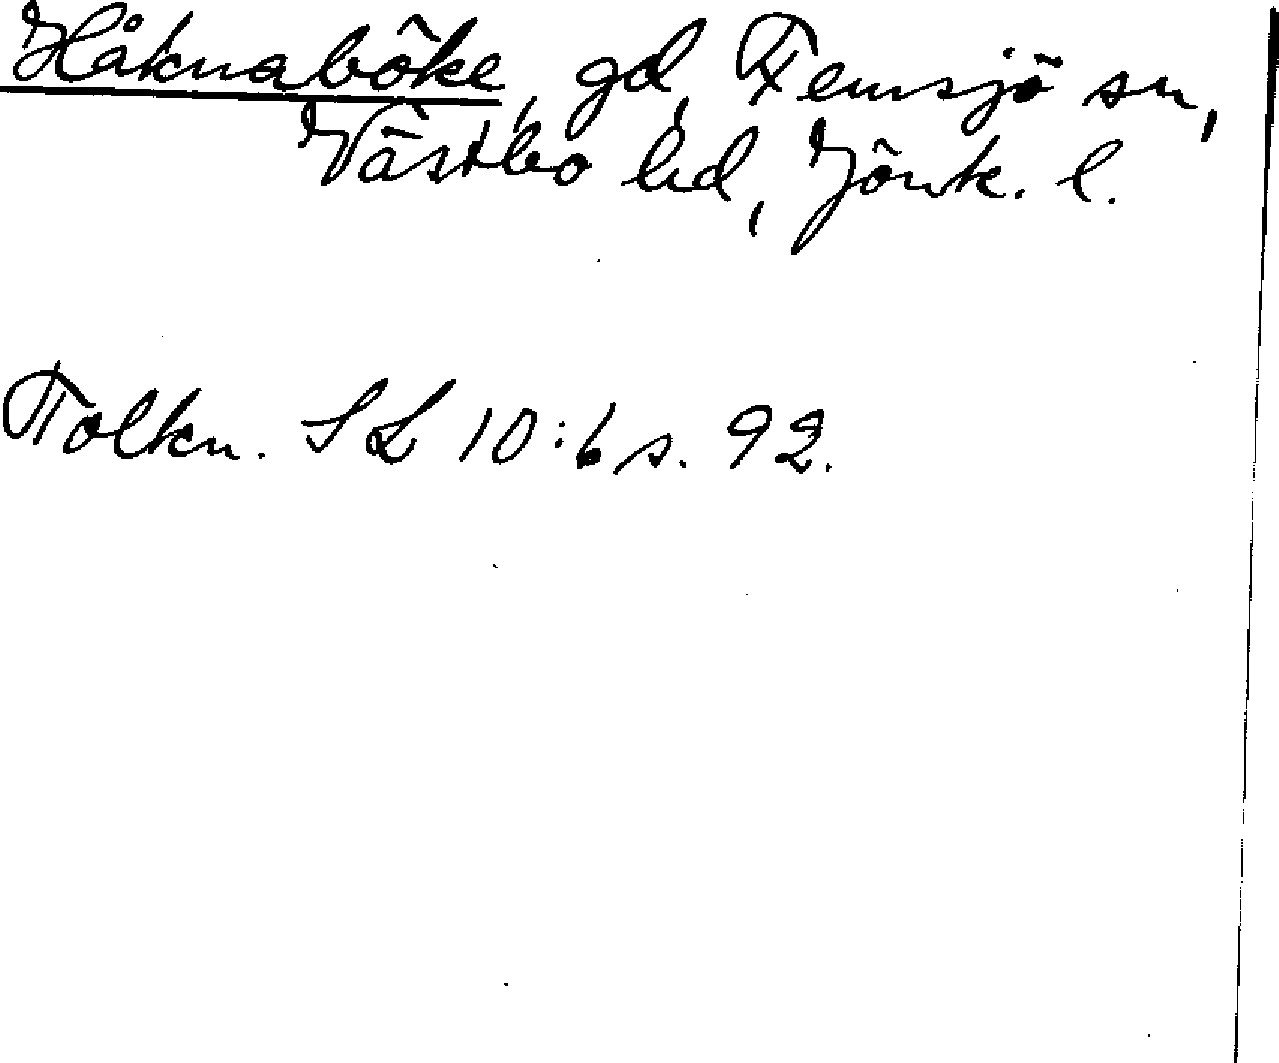 Håknaböke, gd, Femsjö sn,
Västbo hd, Jönk. l.
Tolkn. SL 10:6 s. 92.